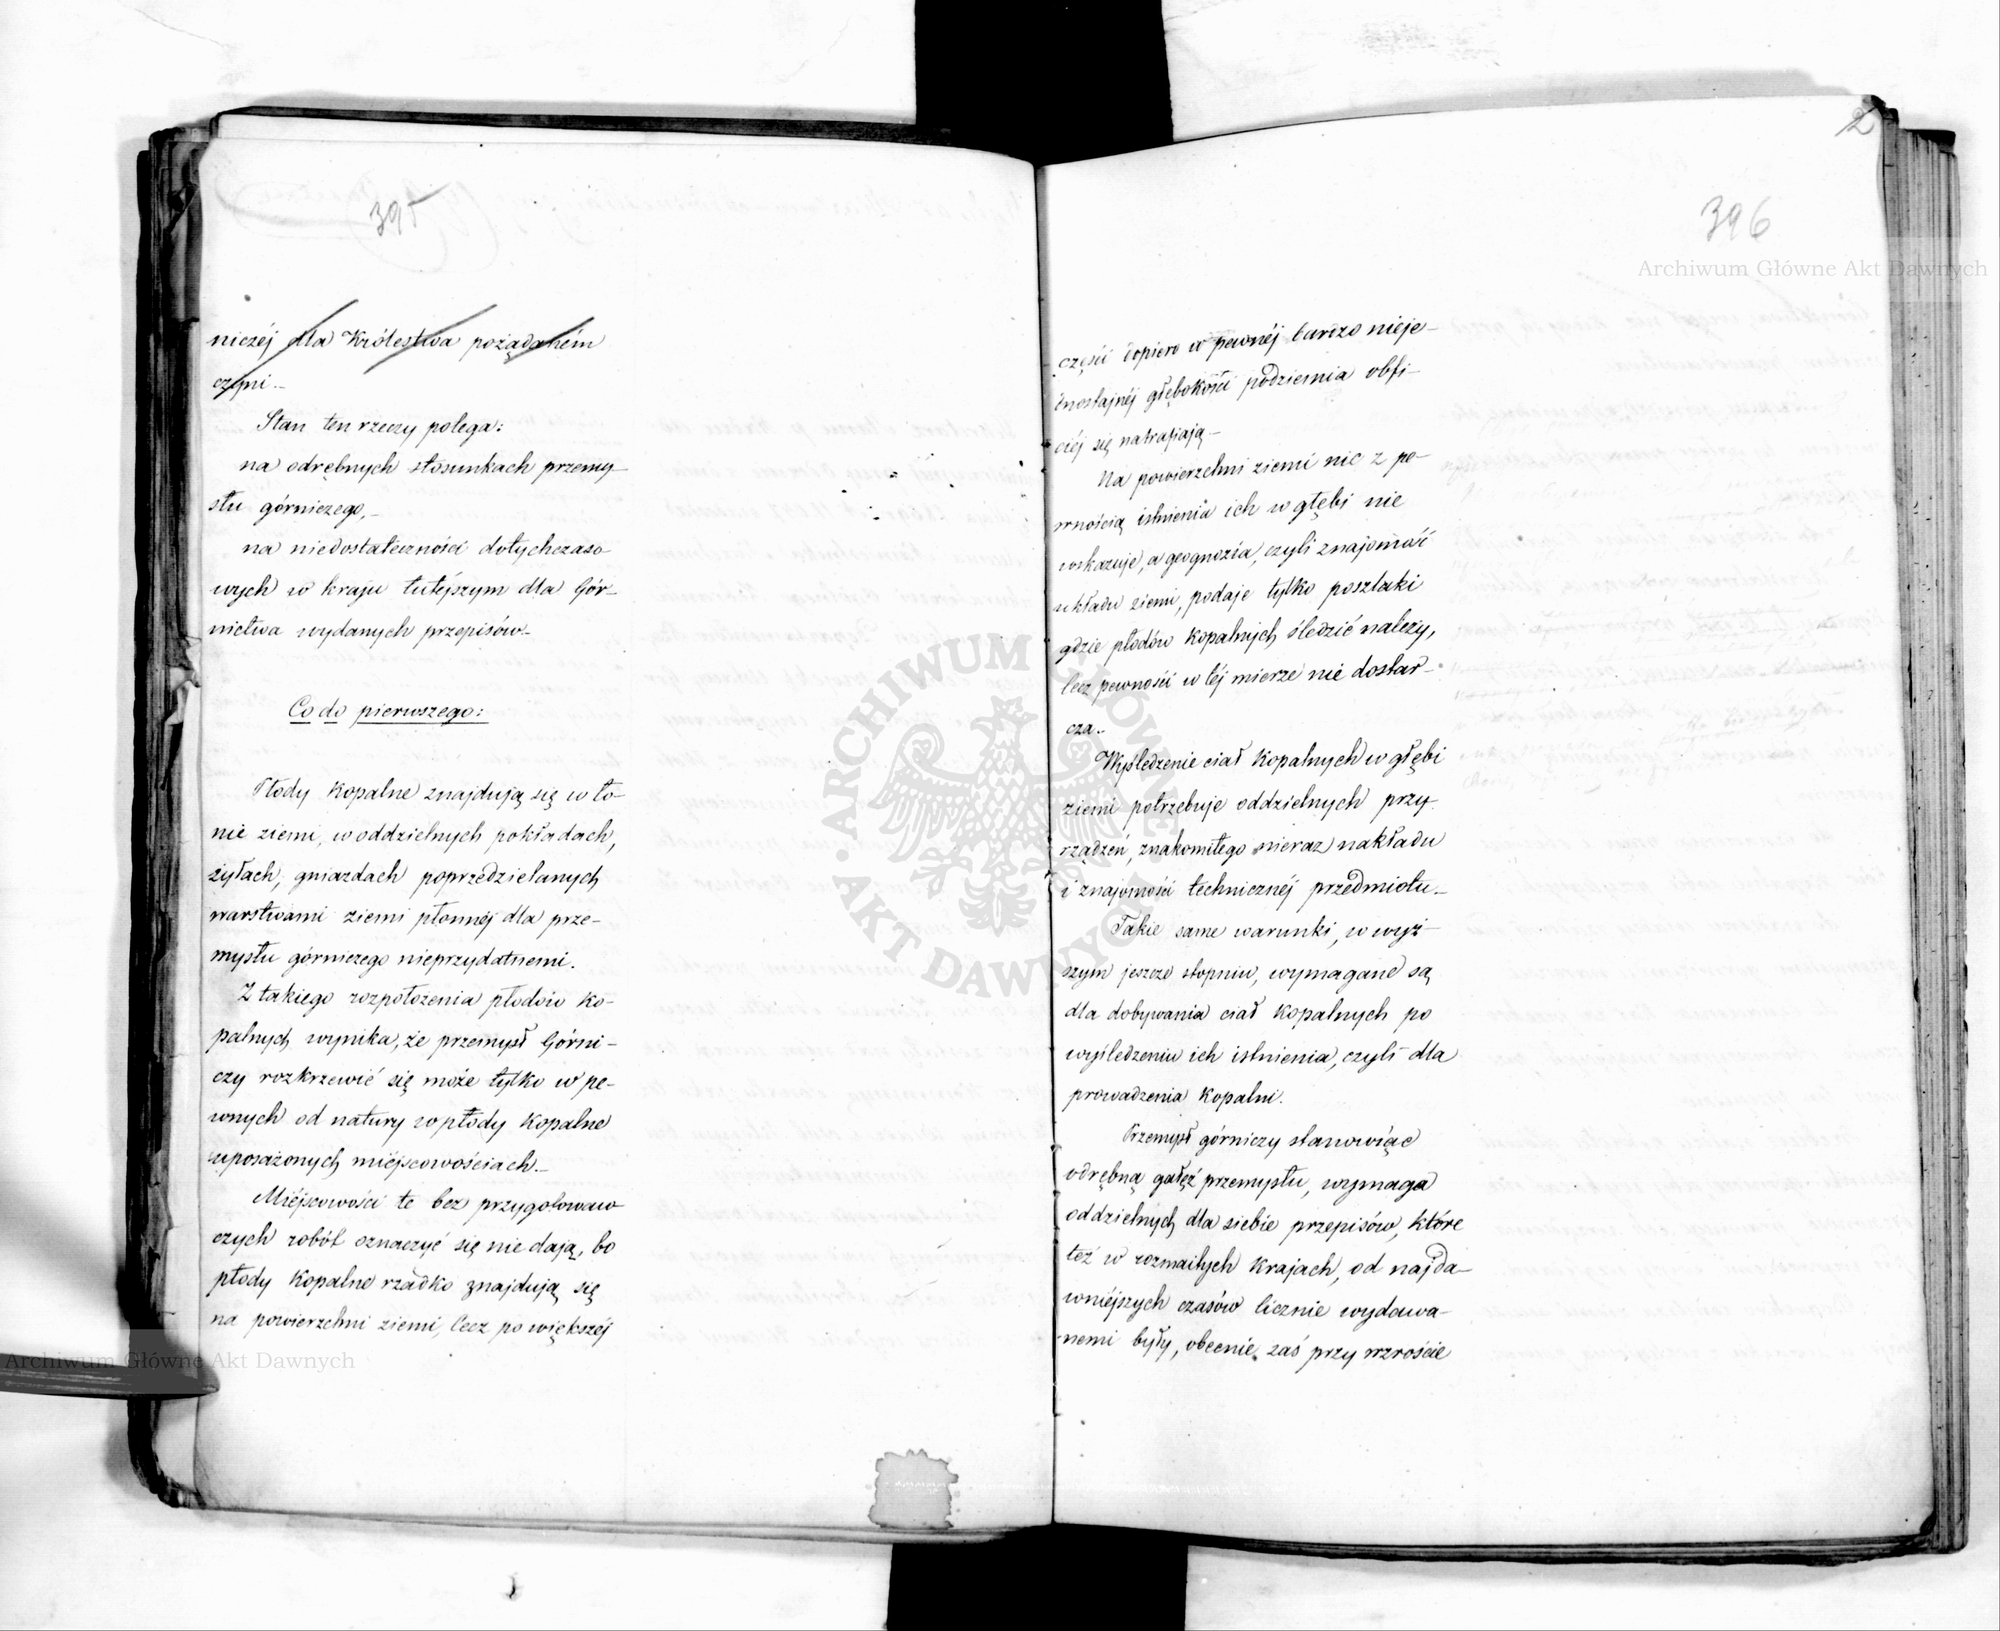 395
niczéj dla Królestwa pożądaném
czyni.–
Stan ten rzeczy polega:
na odrębnych stosunkach przemy–
słu górniczego,–
na niedostateczności dotychczaso
wych w kraju tutéjszym dla Gór–
nictwa wydanych przepisów.–
Co do pierwszego:
Płody kopalne znajdują się w ło–
nie ziemi, w oddzielnych pokładach,
żyłach, gniazdach poprzedzielanych
warstwami ziemi płonnéj dla prze–
mysłu górniczego nieprzydatnemi.
Z takiego rozpołożenia płodów ko–
palnych wynika, że przemysł Górni–
czy rozkrzewić się może tylko w pe–
wnych od natury w płody kopalne
uposażonych miéjscowościach.–
Miéjscowości te bez przygotowaw
czych robót oznaczyć się nie dają, bo
płody kopalne rzadko znajdują się
na powierzchni ziemi, lecz po większéj
2
396
części dopiero w pewnéj bardzo nieje–
dnostajnéj głębokości podziemia obfi–
ciéj się natrafiają–
Na powierzchni ziemi nic z pe–
wnością istnienia ich w głębi nie
wskazuje, a geognozia, czyli znajomość
układu ziemi, podaje tylko poszlaki
gdzie płodów kopalnych śledzić należy,
lecz pewności w téj mierze nie dostar–
cza.–
Wyśledzenie ciał kopalnych w głębi
ziemi potrzebuje oddzielnych przy–
rządzeń, znakomitego nieraz nakładu
i znajomości technicznéj przedmiotu.–
Takie same warunki, w wyż–
szym jeszcze stopniu, wymagane są
dla dobywania ciał kopalnych po
wyśledzeniu ich istnienia, czyli dla
prowadzenia kopalni.
Przemysł górniczy stanowiąc
odrębną gałęź przemysłu, wymaga
oddzielnych dla siebie przepisów, które
też w rozmaitych krajach, od najda–
wniéjszych czasów licznie wydawa–
nemi były, obecnie zaś przy wzroście
Archiwum Główne Akt Dawnych
Archiwum Główne Akt Dawnych
ARCHIWUM GŁÓWNE
AKT DAWNYCH